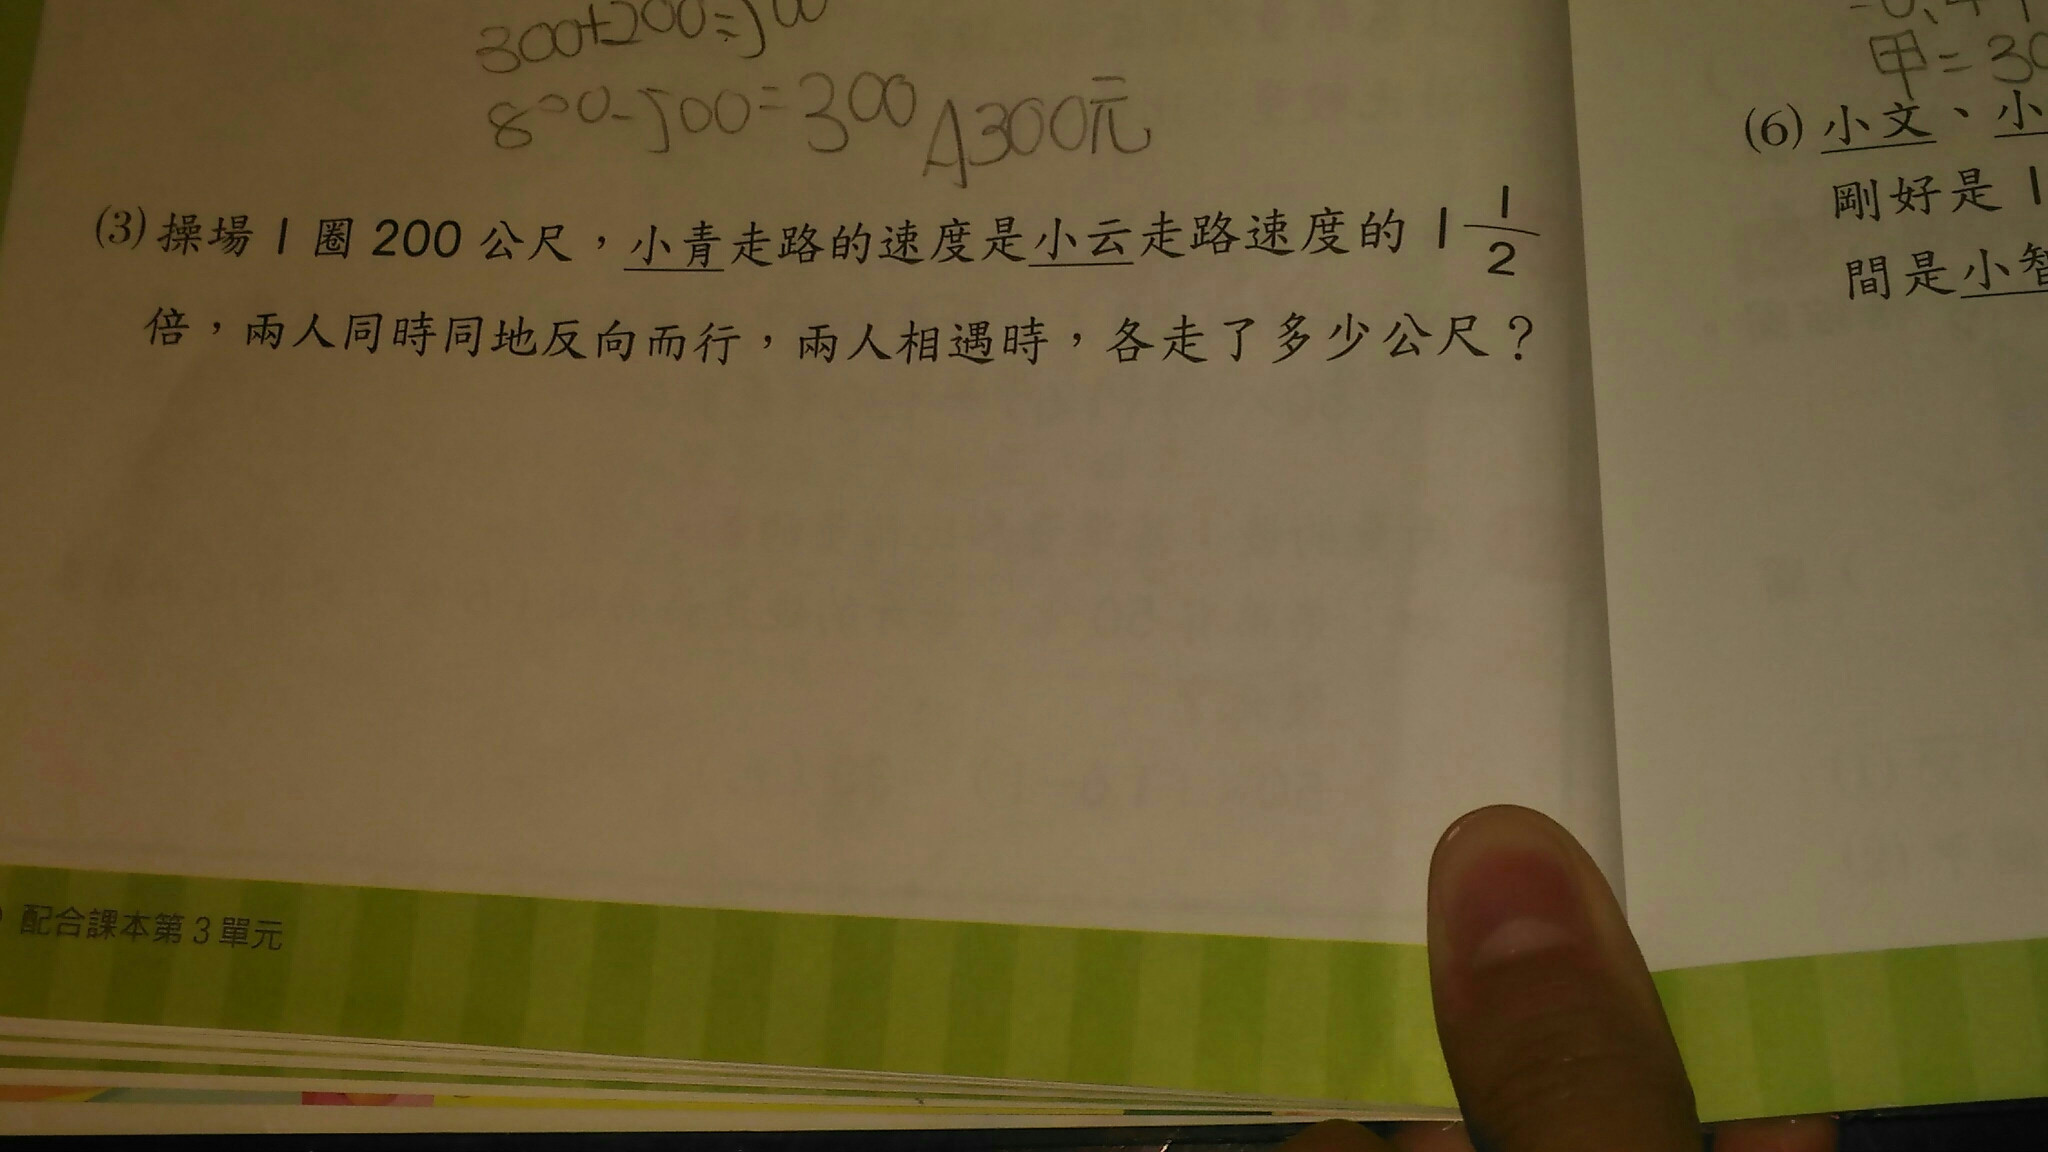 300+200=500
800-500=300 A300元
(3) 操場 1 圈 200 公尺，小青走路的速度是小云走路速度的 1 1/2
倍，兩人同時同地反向而行，兩人相遇時，各走了多少公尺？
配合課本第 3 單元
甲=30
(6) 小文、小
剛好是 1
間是小智